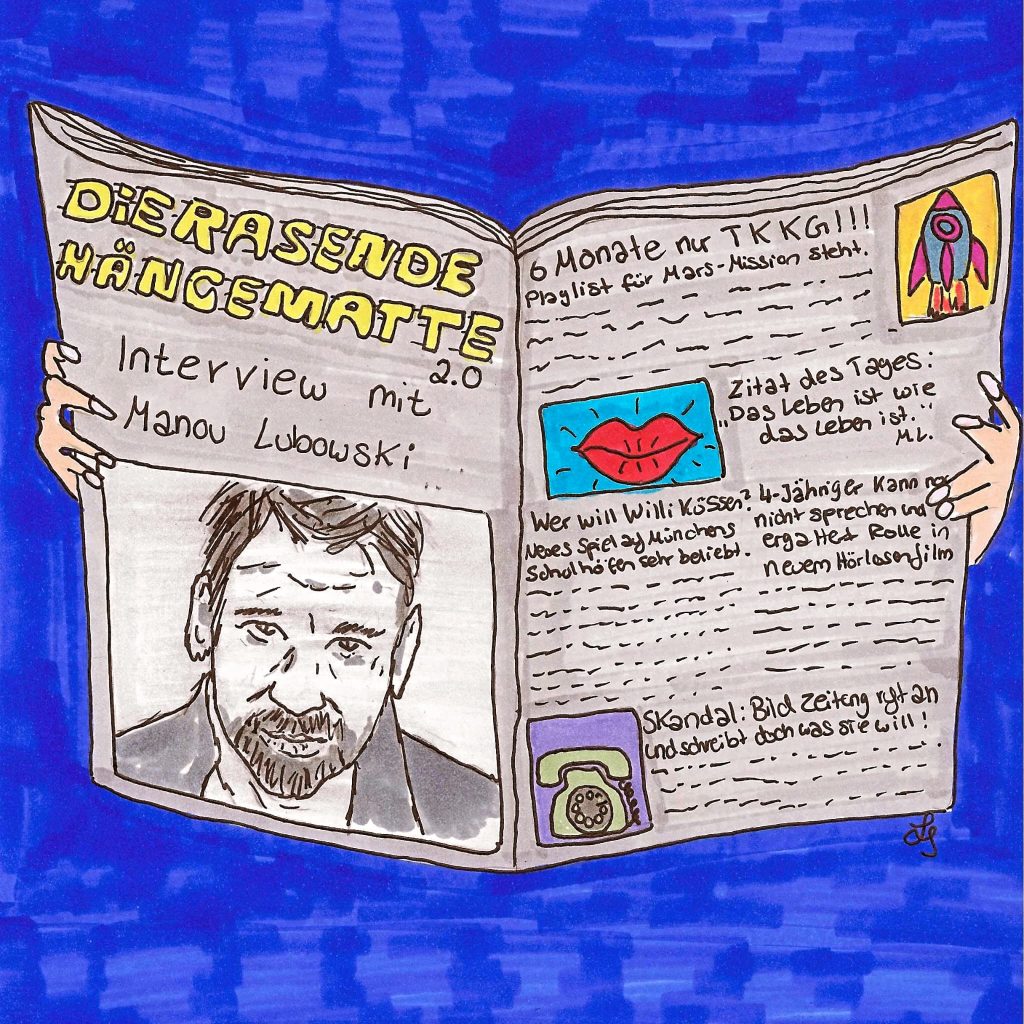 DiE RASENDE
HÄNGEMATTE
2.0
Interview mit
Manou Lubowski
6 Monate nur TKKG!!!
Playlist für Mars-Mission steht.
Zitat des Tages:
„Das Leben ist wie
das Leben ist.“
M.L.
Wer will Willi Küssen?
Neues Spiel auf Münchens
Schulhöfen sehr beliebt.
4-Jähriger kann noch
nicht sprechen und
ergattert Rolle in
neuem Hörlosenfilm
Skandal: Bild Zeitung ruft an
und schreibt doch was sie will!